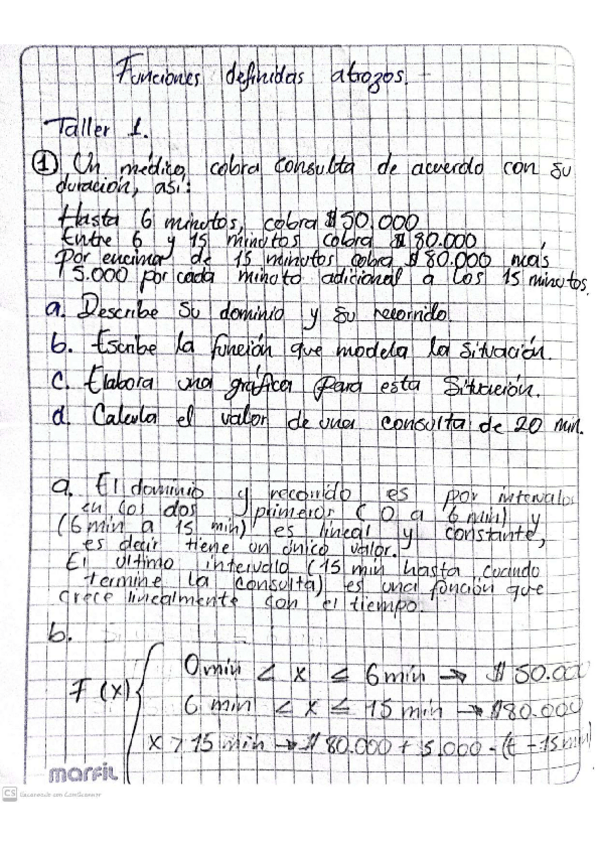 Funciones definidas atrozos.
Taller 1.
① Un médico, cobra consulta de acuerdo con su
duración, así:
Hasta 6 minutos, cobra $50.000
Entre 6 y 15 minutos cobra $80.000
Por encima de 15 minutos cobra $80.000 más
5.000 por cada minuto adicional a los 15 minutos.
a. Describe su dominio y su recorrido.
b. Escribe la función que modela la situación.
c. Elabora una gráfica para esta situación.
d. Calcula el valor de una consulta de 20 min.
a. El dominio y recorrido es por intervalos
en los dos primeros (0 a 6 min) y
(6 min a 15 min) es lineal y constante,
es decir tiene un único valor.
El último intervalo (15 min hasta cuando
termine la consulta) es una función que
crece linealmente con el tiempo.
b.
0 min < x ≤ 6 min → $50.000
F(x) { 6 min < x ≤ 15 min → $80.000
x > 15 min → $80.000 + 5.000 · (t - 15 min)
marfil
CS Escaneado con CamScanner